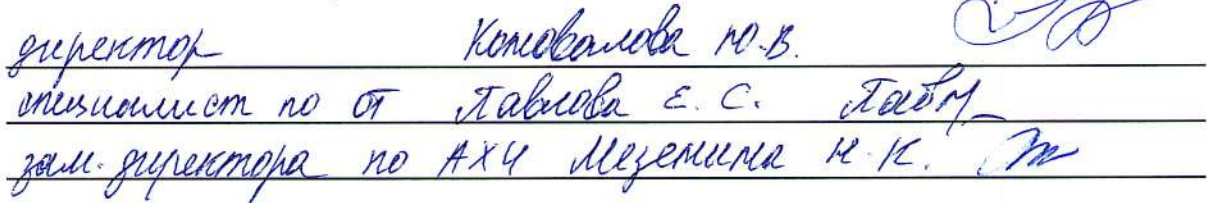 директор Коновалова Ю.В.
специалист по от Павлова Е. С.
зам. директора по АХЧ Мезенина Н.К.